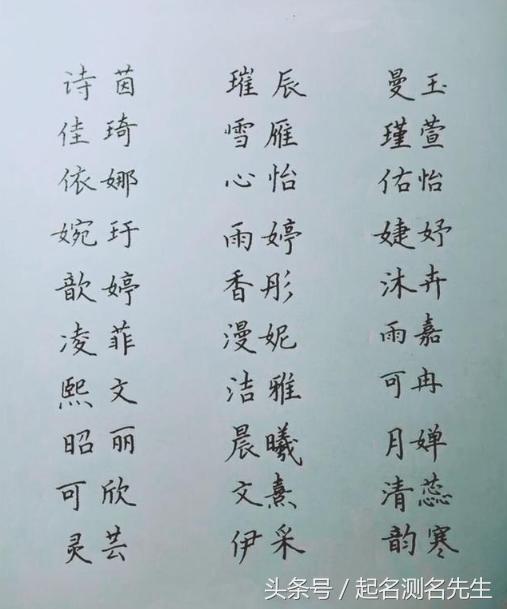 诗茵 璀辰 曼玉
佳琦 雪雁 瑾萱
依娜 心怡 佑怡
婉玗 雨婷 婕妤
歆婷 香彤 沐卉
凌菲 漫妮 雨嘉
熙文 洁雅 可冉
昭丽 晨曦 月婵
可欣 文熹 清蕊
灵芸 伊采 韵寒
头条号／起名测名先生